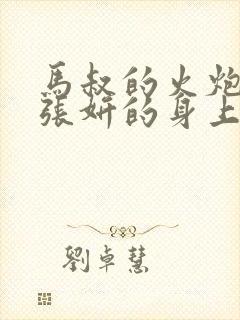 馬叔的火炮
張妍的身上
劉卓慧